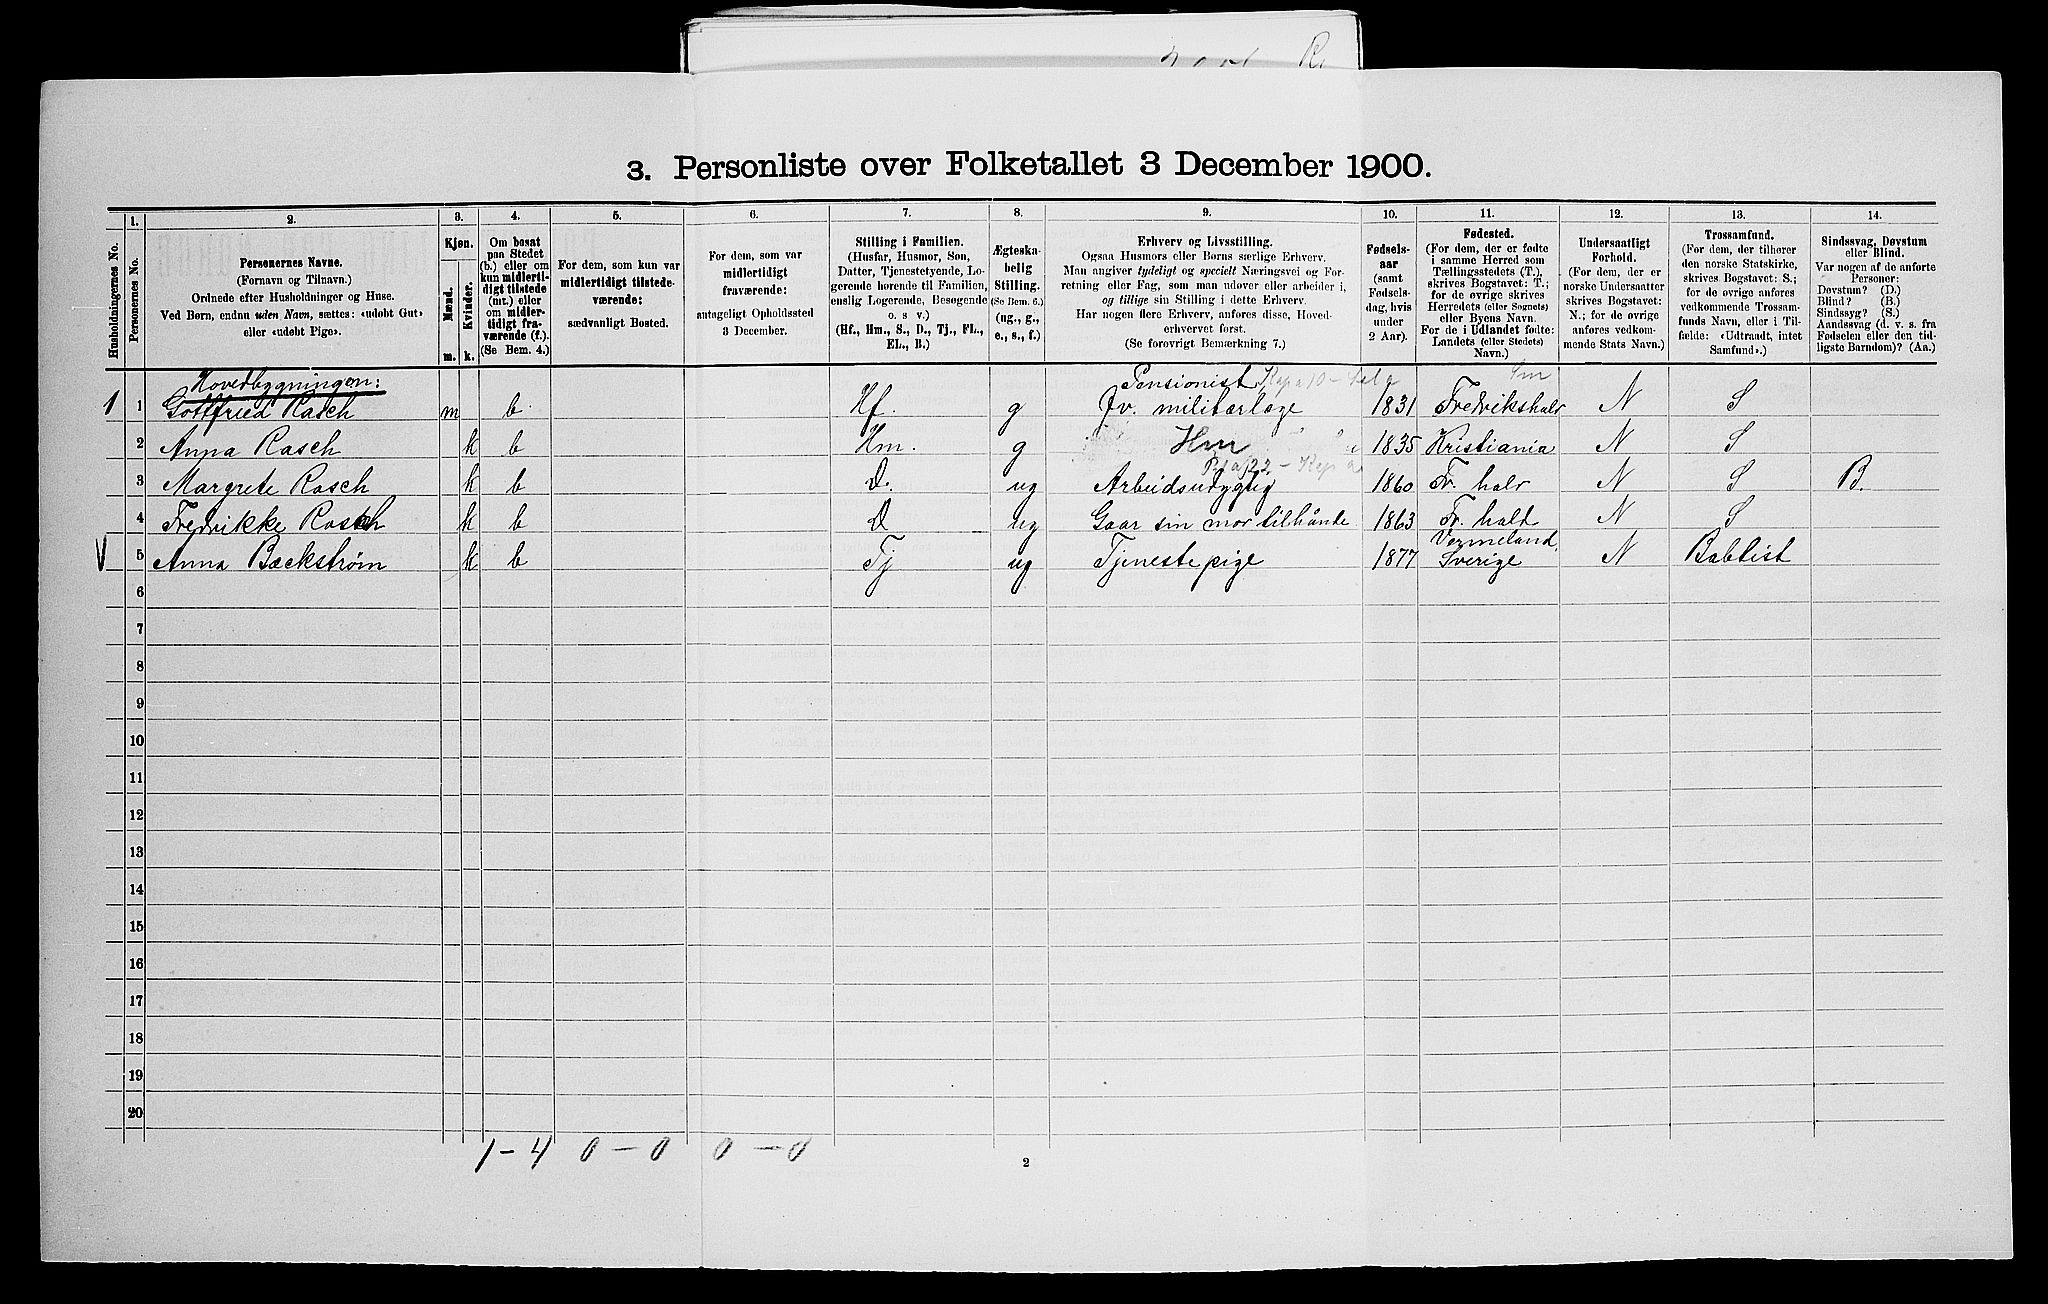 3. Personliste over Folketallet 3 December 1900.
1. 2. 3. 4. 5. 6. 7. 8. 9. 10. 11. 12. 13. 14.
Husholdningernes No.
Personernes No.
Personernes Navne.
(Fornavn og Tilnavn.)
Ordnede efter Husholdninger og Huse.
Ved Børn, endnu uden Navn, sættes: «udøbt Gut»
eller «udøbt Pige».
Kjøn.
Mænd.
Kvinder.
m. k.
Om bosat
paa Stedet
(b.) eller om
kun midlerti-
digt tilstede
(mt.) eller
om midler-
tidigt fra-
værende (f.).
(Se Bem. 4.)
For dem, som kun var
midlertidigt tilstede-
værende:
sædvanligt Bosted.
For dem, som var
midlertidigt
fraværende:
antageligt Opholdssted
3 December.
Stilling i Familien.
(Husfar, Husmor, Søn,
Datter, Tjenestetyende, Lo-
gerende hørende til Familien,
enslig Logerende, Besøgende
o. s v.)
(Hf., Hm., S., D., Tj., FL.,
EL., B.)
Ægteska-
belig
Stilling.
(Se Bem. 6.)
(ug., g.,
e., s., f.)
Erhverv og Livsstilling.
Ogsaa Husmors eller Børns særlige Erhverv.
Man angiver tydeligt og specielt Næringsvei og For-
retning eller Fag, som man udøver eller arbeider i,
og tillige sin Stilling i dette Erhverv.
Har nogen flere Erhverv, anføres disse, Hoved-
erhvervet først.
(Se forøvrigt Bemærkning 7.)
Fødsels-
aar
(samt
Fødsels-
dag, hvis
under
2 Aar).
Fødested.
(For dem, der er fødte
i samme Herred som
Tællingsstedets (T.),
skrives Bogstavet: T.;
for de øvrige skrives
Herredets (eller Sognets)
eller Byens Navn.
For de i Udlandet fødte:
Landets (eller Stedets)
Navn.)
Undersaatligt
Forhold.
(For dem, der er
norske Undersaatter
skrives Bogstavet:
N.; for de øvrige
anføres vedkom-
mende Stats Navn.)
Trossamfund.
(For dem, der tilhører
den norske Statskirke,
skrives Bogstavet: S.;
for de øvrige anføres
vedkommende Trossam-
funds Navn, eller i Til-
fælde: «Udtraadt, intet
Samfund».)
Sindssvag, Døvstum
eller Blind.
Var nogen af de anførte
Personer:
Døvstum? (D.)
Blind? (B.)
Sindssyg? (S.)
Aandssvag (d. v. s. fra
Fødselen eller den tid-
ligste Barndom)? (Aa.)
Hovedbygningen: Pensionist
1 1 Gottfried Rasch m b. Hf. g fv. militærlæge 1831 Fredrikshald N S
2 Anna Rasch k b Hm. g Hm 1835 Kristiania N S
3 Margrete Rasch k b D. ug Arbeidsudygtig 1860 Fr. hald N S B.
4 Fredrikke Rasch k b D ug Gaar sin mor tilhånde 1863 Fr. hald N S
Vermeland,
5 Anna Bæckstrøm k b Tj ug Tjenestepige 1877 Sverige N Babtist
6
7
8
9
10
11
12
13
14
15
16
17
18
19
20
1-4 0-0 0-0
2